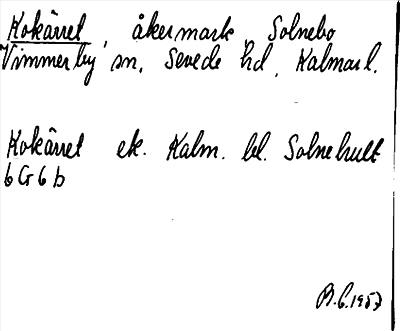 Kokärret, åkermark Solnebo
Vimmerby sn, Sevede hd, Kalmar l.
Kokärret ek. Kalm. bl. Solnehult
6G6b